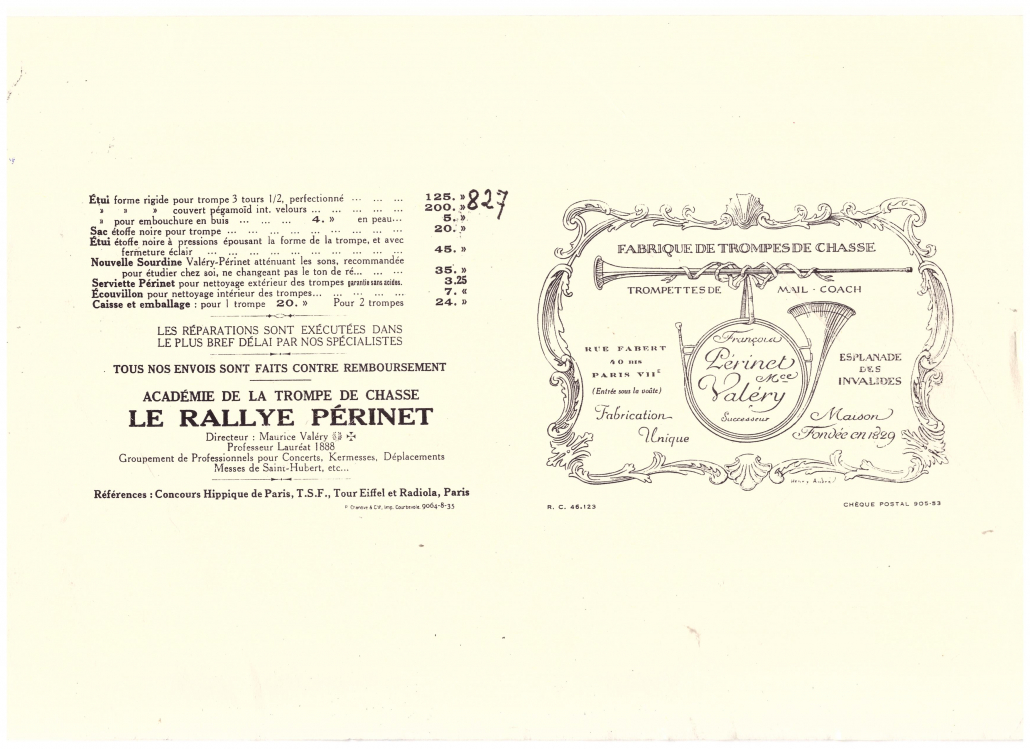 Étui forme rigide pour trompe 3 tours 1/2, perfectionné ... ... ... 125. »
» » » couvert pégamoïd int. velours ... ... ... ... ... 200. »
» pour embouchure en buis ... ... ... 4. » en peau... 5. »
Sac étoffe noire pour trompe ... ... ... ... ... ... ... ... ... 20. »
Étui étoffe noire à pressions épousant la forme de la trompe, et avec
fermeture éclair ... ... ... ... ... ... ... ... ... ... 45. »
Nouvelle Sourdine Valéry-Périnet atténuant les sons, recommandée
pour étudier chez soi, ne changeant pas le ton de ré... ... ... 35. »
Serviette Périnet pour nettoyage extérieur des trompes garantie sans acides. 3.25
Écouvillon pour nettoyage intérieur des trompes... ... ... ... ... 7. «
Caisse et emballage : pour 1 trompe 20. » Pour 2 trompes 24. »
827
LES RÉPARATIONS SONT EXÉCUTÉES DANS
LE PLUS BREF DÉLAI PAR NOS SPÉCIALISTES
TOUS NOS ENVOIS SONT FAITS CONTRE REMBOURSEMENT
ACADÉMIE DE LA TROMPE DE CHASSE
LE RALLYE PÉRINET
Directeur : Maurice Valéry
Professeur Lauréat 1888
Groupement de Professionnels pour Concerts, Kermesses, Déplacements
Messes de Saint-Hubert, etc...
Références : Concours Hippique de Paris, T.S.F., Tour Eiffel et Radiola, Paris
Imp. Courbevoie 9064-8-35
FABRIQUE DE TROMPES DE CHASSE
TROMPETTES DE MAIL-COACH
RUE FABERT
40 BIS
PARIS VIIE
(Entrée sous la voûte)
Fabrication
Unique
François
Périnet
Mce
Valéry
Successeur
ESPLANADE
DES
INVALIDES
Maison
Fondée en 1829
R. C. 46.123
CHÈQUE POSTAL 905-53